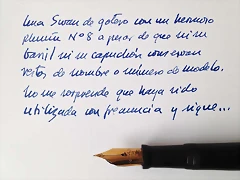 Una Swan de gotero con un hermoso
plumín Nº 8 a pesar de que ni su
barril ni su capuchón conservan
restos de nombre o número de modelo.
No me sorprende que haya sido
utilizada con frecuencia y sigue...